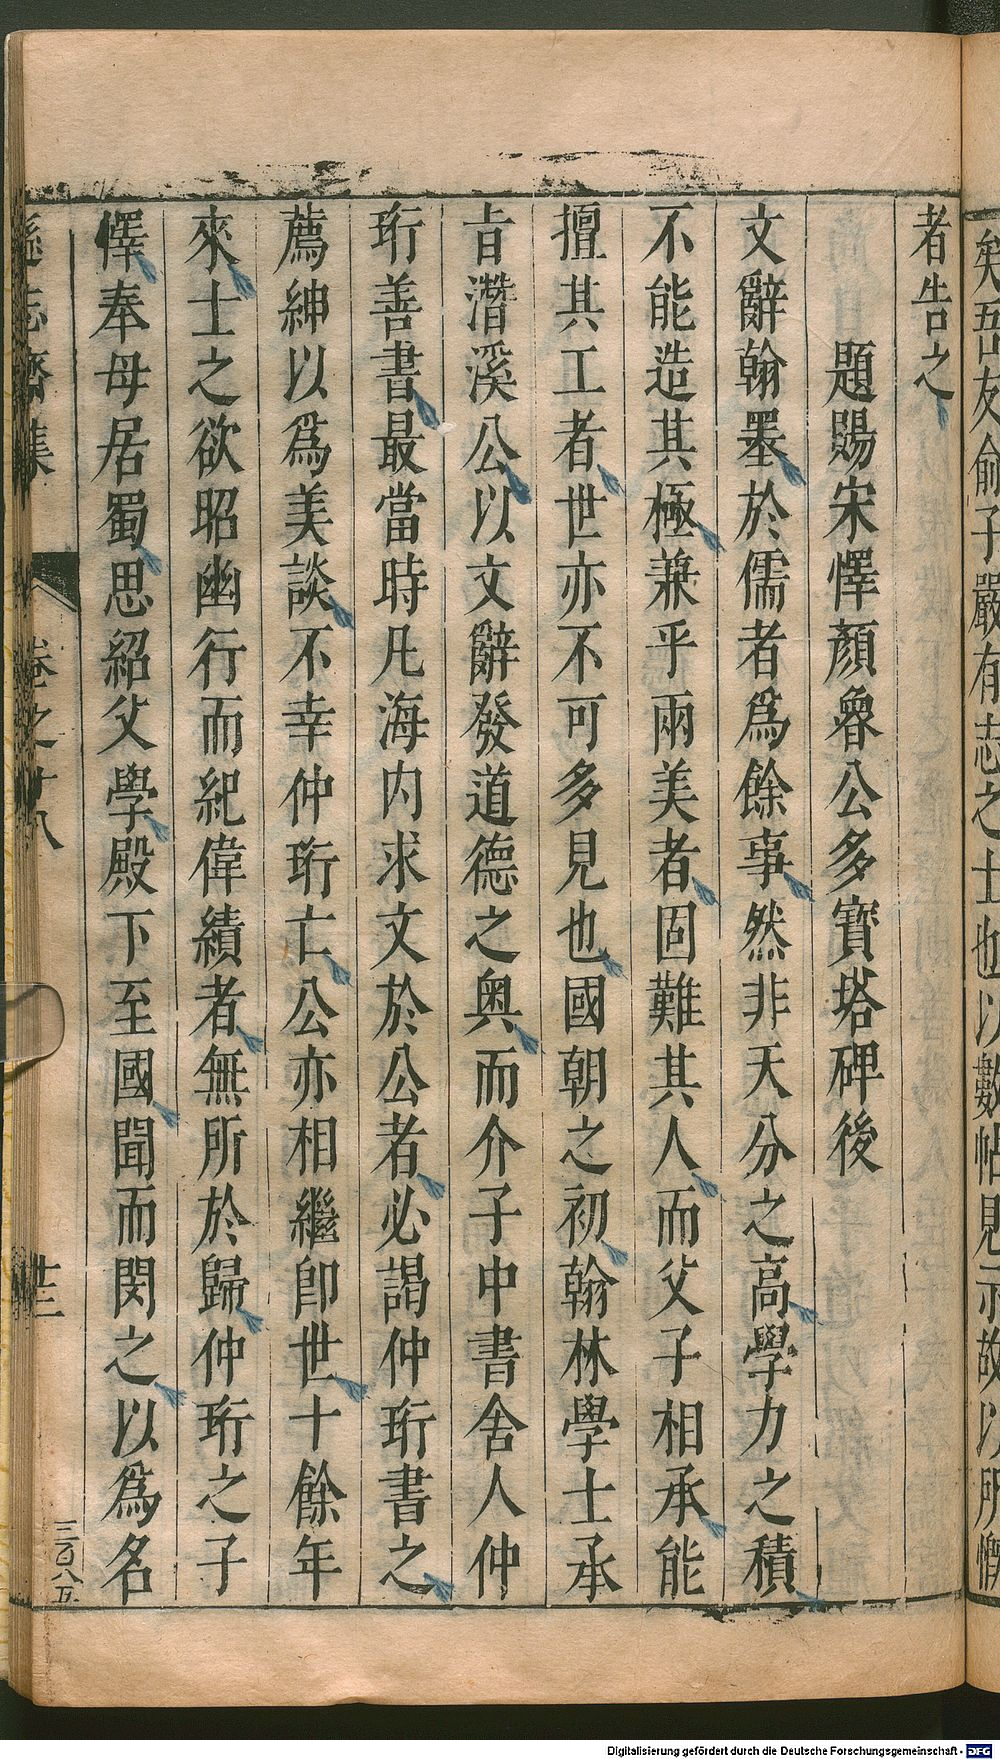 矣吾友俞子嚴有志之士也以數帖見示故以所慨
者告之
題賜宋懌顏魯公多寶塔碑後
文辭翰墨於儒者爲餘事然非天分之高學力之積
不能造其極兼乎兩美者固難其人而父子相承能
擅其工者世亦不可多見也國朝之初翰林學士承
旨潛溪公以文辭發道德之奧而介子中書舍人仲
珩善書最當時凡海内求文於公者必謁仲珩書之
薦紳以爲美談不幸仲珩亡公亦相繼卽世十餘年
來士之欲昭幽行而紀偉績者無所於歸仲珩之子
懌奉母居蜀思紹父學殿下至國聞而閔之以爲名
遜志齋集 卷之十八 廿三 三百八五
Digitalisierung gefördert durch die Deutsche Forschungsgemeinschaft - DFG